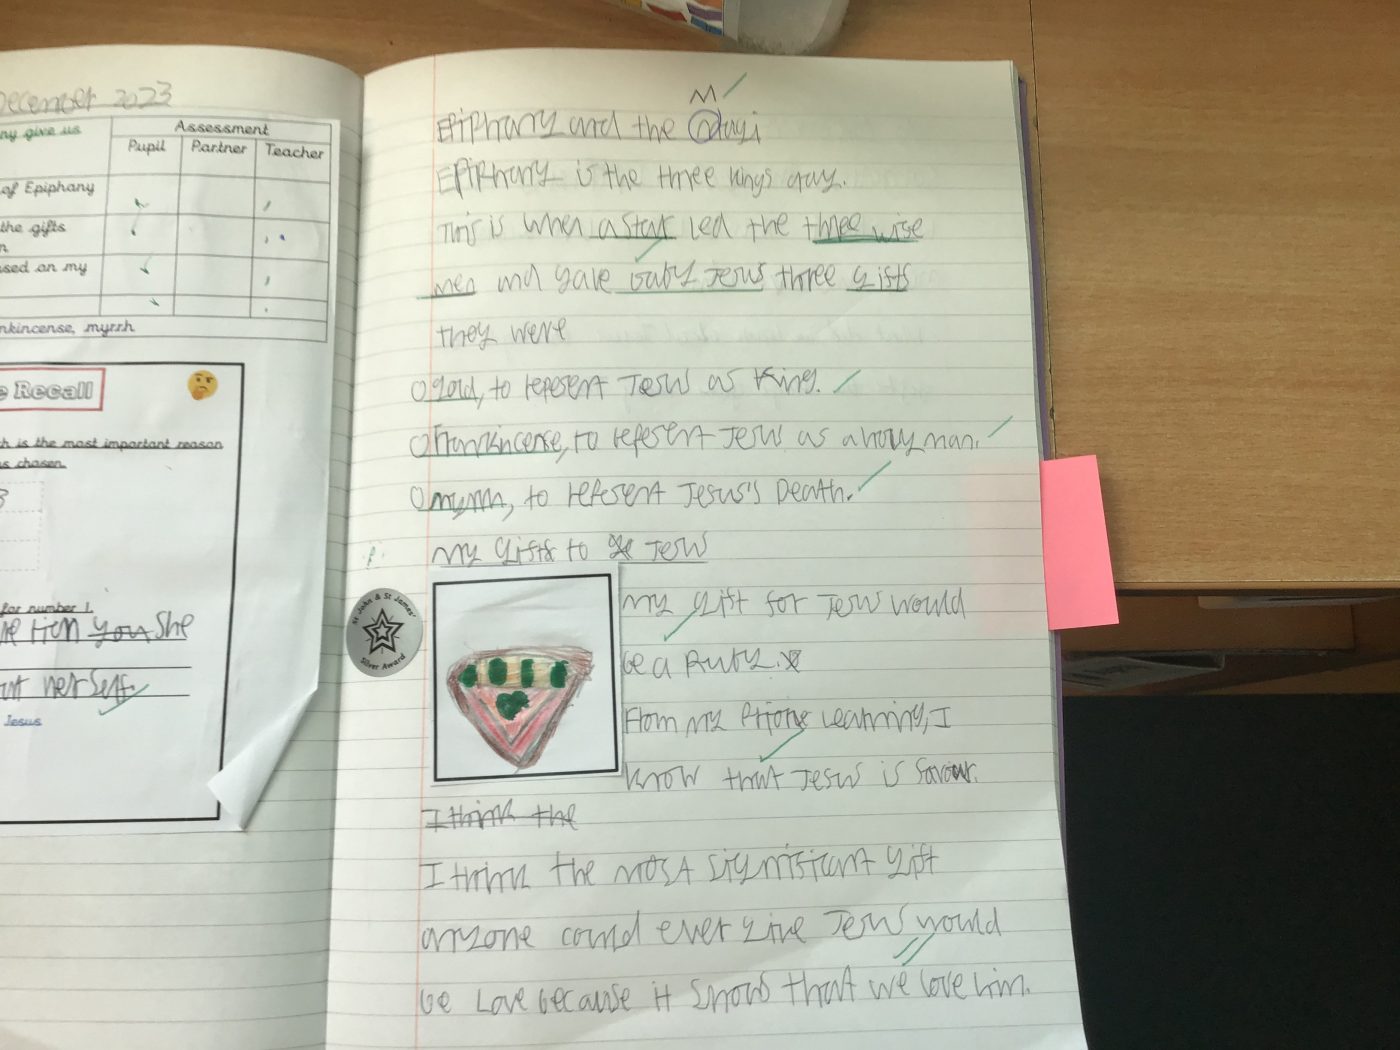 December 2023
ny give us
Assessment
Pupil
Partner
Teacher
of Epiphany
the gifts
n
sed on my
nkincense, myrrh
e Recall
h is the most important reason
s chosen.
3
for number 1.
you She
herself.
Jesus
M
Epiphany and the magi
Epiphany is the three kings day.
This is when a star led the three wise
men and gave baby Jesus three gifts
they were
gold, to repesent Jesus as King.
Frankincense, to repesent Jesus as a holy man.
myrrh, to repesent Jesus's Death.
My gifts to Jesus
St John & St James'
Silver Award
My gift for Jesus would
be a Ruby.
From my Prione learning, I
know that Jesus is Saviour.
I think the
I think the most significant gift
anyone could ever give Jesus would
be Love because it shows that we love him.